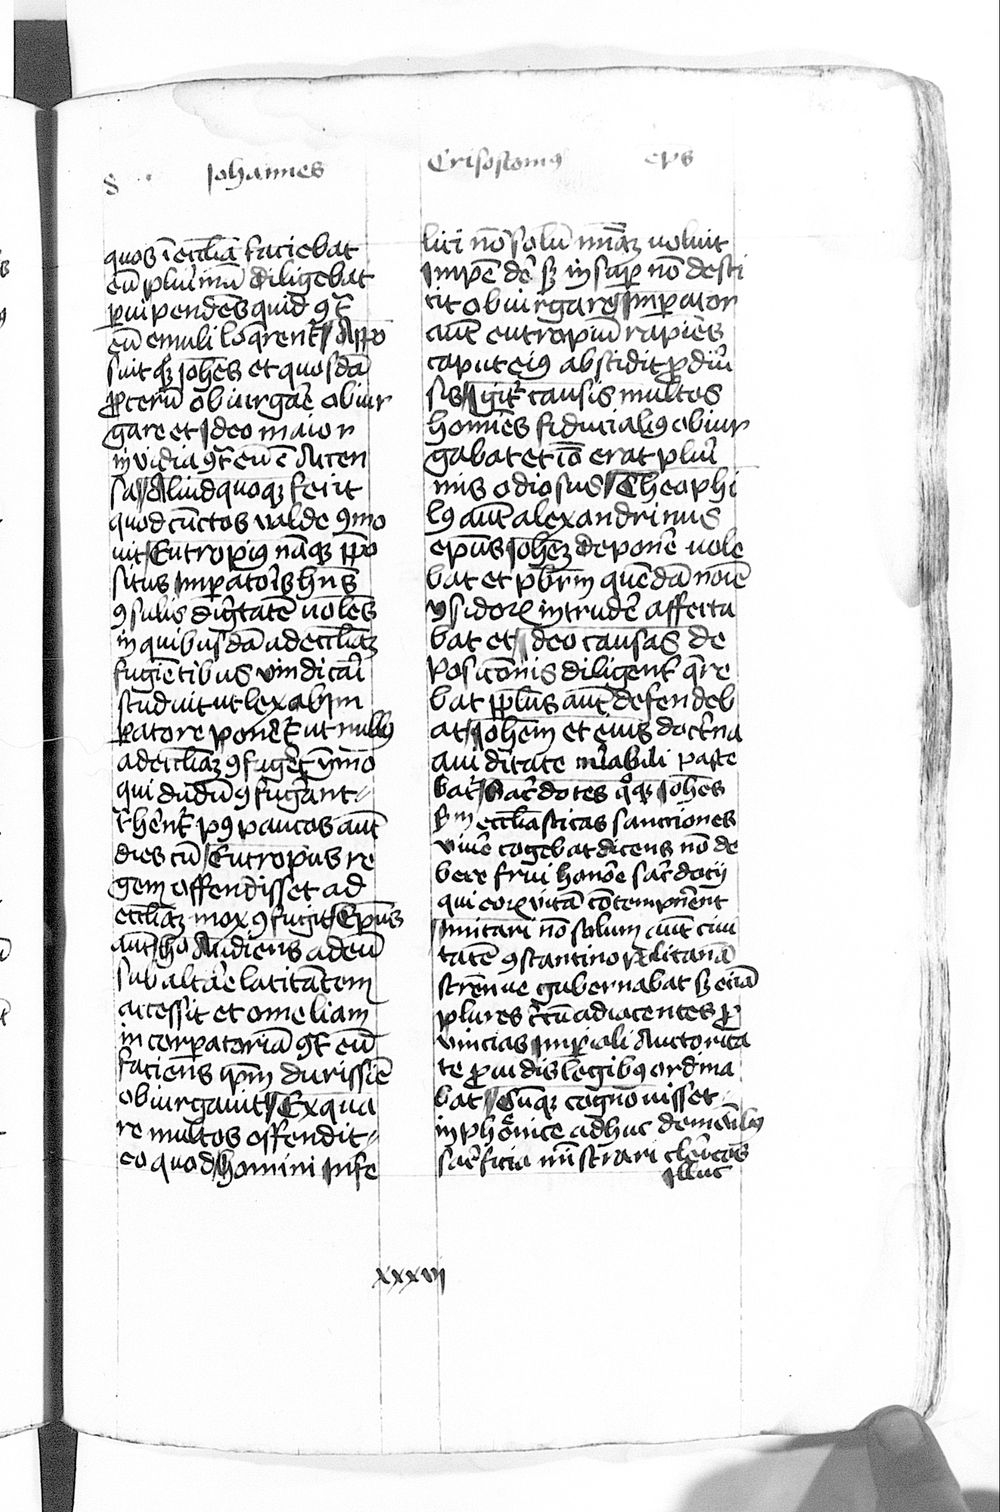 S Johannes Crisostomus eps
quos ī eccliā faciebat
eū plurimū diligebat
parui pendens quid ꝯtͣ
eū emuli loqrent Appo
suit qꝫ Johes et quosdā
ꝓcerū obiurgare obiur
gare et Ideo maior
inuidia ꝯtͣ eū ē Accen
sa Aliud quoqꝫ fecit
quod cūctos valde ꝯmo
uit Eutropiꝰ nāqꝫ ppo
situs Imperatoris hns
ꝯsulis dignitatē volēs
in quibusdā ad eccliaꝫ
fugiētibus vindicari
studuit ut lex ab im
peratore poneret ut nullus
ad eccliaꝫ ꝯfugeret ymmo
qui dudū ꝯfugerant
Pꝰ paucos aūt
dies cū Eutropius re
gem offendisset ad
eccliaꝫ mox ꝯfugit Epus
aūt hoc Audiens ad eū
sub altare latitātem
accessit et omeliam
in corpatoriā ꝯtͣ eū
faciens ipm durissīe
obiurgauit Ex qua
re multos offendit
eo quod homini Infe
lici nō solū mīaꝫ noluit
Impēdere sꝫ insup nō desti
tit obiurgare Imperator
aūt eutropiū rapiēs
caput eiꝰ abscidit ꝓ diu
sis Igitͬ causis multos
homīes fiducialiꝰ obiur
gabat et iō erat pluri
mis odiosus Theophi
lꝰ aūt alexandrinus
epus Johem deponere vole
bat et pbrm quēdā noīe
ysidorꝫ intrudere affecta
bat et Ideo causas de
posicionis diligent qre
bat pplus aūt defendeb
at Johem et eius doctrīa
auiditate mirabili pasce
batͬ Sacerdotes qͦqꝫ Johes
scdm ecclasticas sanctiones
viuere cogebat dicens nō de
bere frui honore sacerdocij
qui eorꝫ vitā cōtempnerent
Imitari nō solum aūt ciui
tatē ꝯstantinopolitanā
strennue gubernabat sꝫ eciā
plures circūadiacentes ꝓ
vincias Imperiali Auctorita
te ꝓuidis legibꝰ ordina
bat Cūqꝫ cognouisset
in phenice adhuc demonibꝰ
sacrificia mīstrari clericos
Illuc
xxxvi